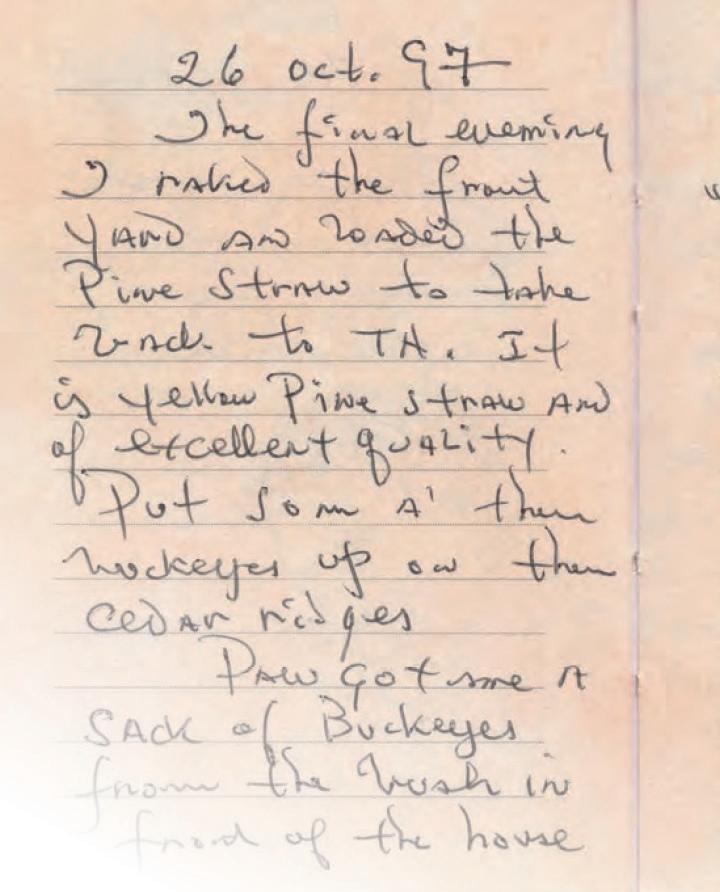 26 Oct. 97
The final evening
I raked the front
yard an loaded the
Pine Straw to take
back to TA. It
is yellow Pine straw and
of excellent quality.
Put som a' them
buckeyes up on them
cedar ridges
Paw got me a
sack of Buckeyes
from the bush in
front of the house